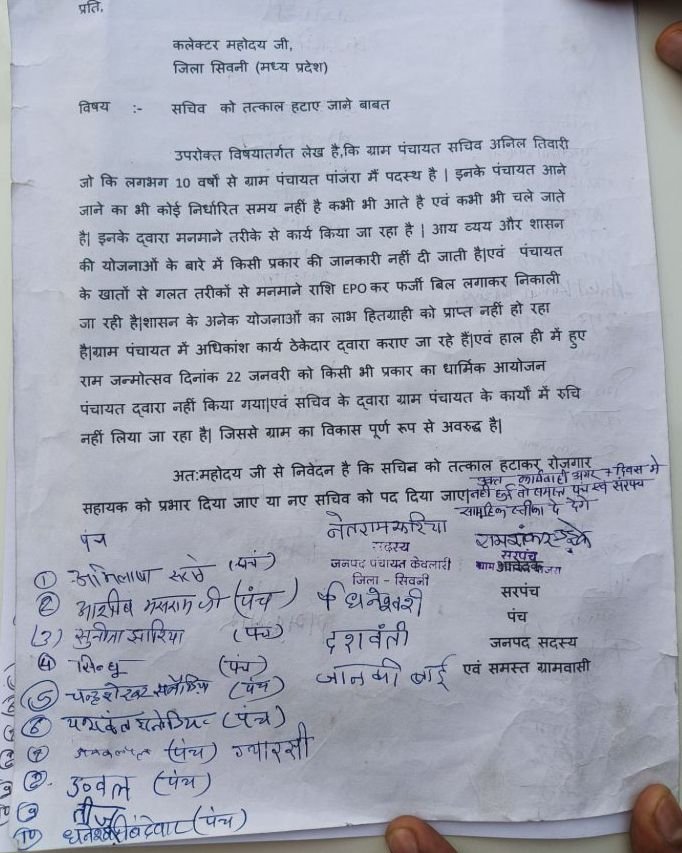 प्रति,
कलेक्टर महोदय जी,
जिला सिवनी (मध्य प्रदेश)
विषय :- सचिव को तत्काल हटाए जाने बाबत
उपरोक्त विषयातर्गत लेख है,कि ग्राम पंचायत सचिव अनिल तिवारी
जो कि लगभग 10 वर्षो से ग्राम पंचायत पांजरा में पदस्थ है | इनके पंचायत आने
जाने का भी कोई निर्धारित समय नहीं है कभी भी आते है एवं कभी भी चले जाते
है| इनके द्वारा मनमाने तरीके से कार्य किया जा रहा है | आय व्यय और शासन
की योजनाओं के बारे में किसी प्रकार की जानकारी नहीं दी जाती है|एवं पंचायत
के खातों से गलत तरीकों से मनमाने राशि EPO कर फर्जी बिल लगाकर निकाली
जा रही है|शासन के अनेक योजनाओं का लाभ हितग्राही को प्राप्त नहीं हो रहा
है|ग्राम पंचायत में अधिकांश कार्य ठेकेदार द्वारा कराए जा रहे हैं|एवं हाल ही में हुए
राम जन्मोत्सव दिनांक 22 जनवरी को किसी भी प्रकार का धार्मिक आयोजन
पंचायत द्वारा नहीं किया गया|एवं सचिव के द्वारा ग्राम पंचायत के कार्यों में रुचि
नहीं लिया जा रहा है| जिससे ग्राम का विकास पूर्ण रूप से अवरुद्ध है|
अत:महोदय जी से निवेदन है कि सचिव को तत्काल हटाकर रोजगार
उक्त कार्यवाही अगर 7 दिवस मे
सहायक को प्रभार दिया जाए या नए सचिव को पद दिया जाए|
नही हुई तो समस्त पंच एवं सरपंच
सामूहिक स्तीफा दे देंगे
पंच
नेतराम झारिया
सदस्य
जनपद पंचायत केवलारी
जिला - सिवनी
रामशंकर
सरपंच
ग्राम
आवेदक
सरपंच
पंच
जनपद सदस्य
एवं समस्त ग्रामवासी
① अभिलाषा (पंच)
② आशीष मसराम जी (पंच)
धनेश्वरी
(3) सुनीता झारिया (पंच)
दशवंती
④ सिन्धु (पंच)
जानकी बाई
⑤ चन्द्रशेखर (पंच)
⑥ (पंच)
⑦ (पंच) ग्यारसी
⑧. (पंच)
⑨
⑩ (पंच)